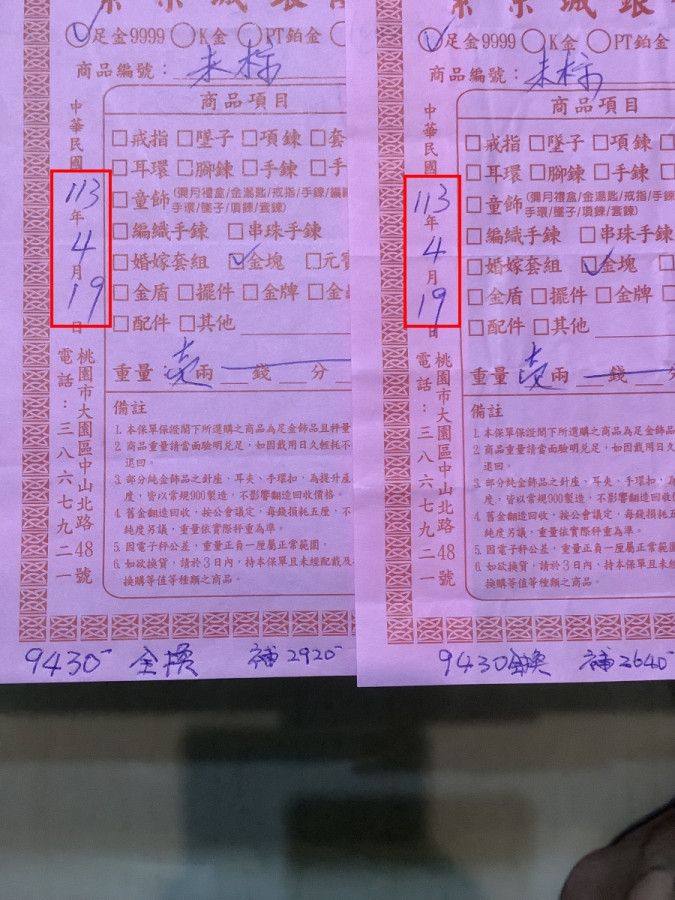 足金9999 K金 PT鉑金
商品編號：未標
中華民國113年4月19日
商品項目
戒指 墜子 項鍊 套
耳環 腳鍊 手鍊 手
童飾(彌月禮盒/金湯匙/戒指/手鍊/編
手環/墜子/項鍊/套鍊)
編織手鍊 串珠手鍊
婚嫁套組 金塊 元寶
金盾 擺件 金牌 金
配件 其他
重量 壹兩 錢 分
桃園市大園區中山北路48號
電話：三八六七九二一
備註
1. 本保單保證閣下所選購之商品為足金飾品且秤量
2. 商品重量請當面驗明見足，如因戴用日久輕耗不
退回。
3. 部分純金飾品之針座、耳夾、手環扣，為提升產
度，皆以常規900製造，不影響翻造回收價格。
4. 舊金翻造回收，按公會議定，每錢損耗五厘，不
純度另議，重量依實際秤重為準。
5. 因電子秤公差，重量正負一厘屬正常範圍。
6. 如欲換貨，請於3日內，持本保單且未經配戴及
換購等值等種類之商品。
9430 全換 補2920
足金9999 K金 PT鉑金
商品編號：未標
中華民國113年4月19日
商品項目
戒指 墜子 項鍊
耳環 腳鍊 手鍊
童飾(彌月禮盒/金湯匙/戒指/手
手環/墜子/項鍊/套鍊)
編織手鍊 串珠手鍊
婚嫁套組 金塊
金盾 擺件 金牌
配件 其他
重量 壹兩 錢
桃園市大園區中山北路48號
電話：三八六七九二一
備註
1. 本保單保證閣下所選購之商品為足金飾品
2. 商品重量請當面驗明見足，如因戴用日久
退回。
3. 部分純金飾品之針座、耳夾、手環扣，
度，皆以常規900製造，不影響翻造回收
4. 舊金翻造回收，按公會議定，每錢損耗五
純度另議，重量依實際秤重為準。
5. 因電子秤公差，重量正負一厘屬正常範圍
6. 如欲換貨，請於3日內，持本保單且未經
換購等值等種類之商品。
9430 全換 補2640